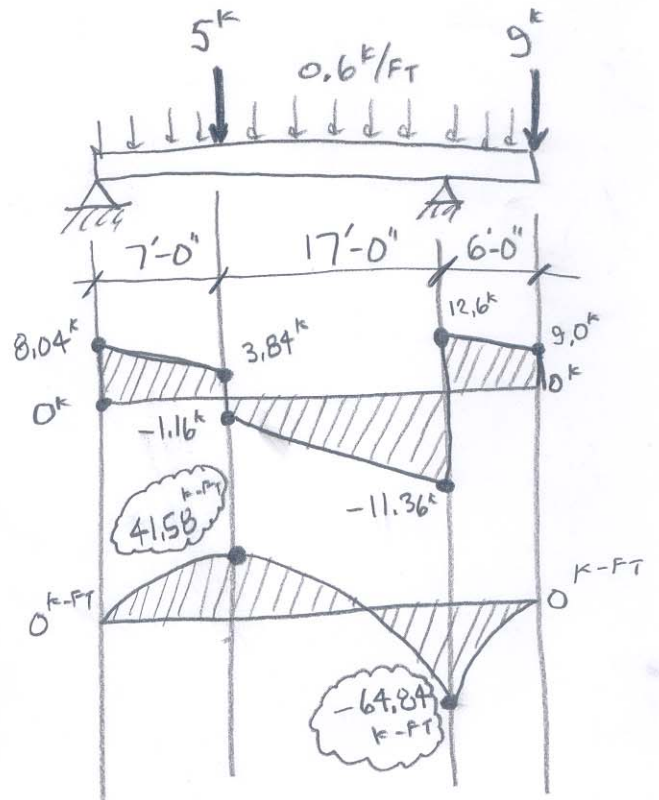 5ᴷ 9ᴷ
0.6ᴷ/FT
7'-0" 17'-0" 6'-0"
8.04ᴷ 3.84ᴷ 12.6ᴷ 9.0ᴷ
0ᴷ -1.16ᴷ 0ᴷ
-11.36ᴷ
41.58 K-FT
0 K-FT 0 K-FT
-64.84
K-FT